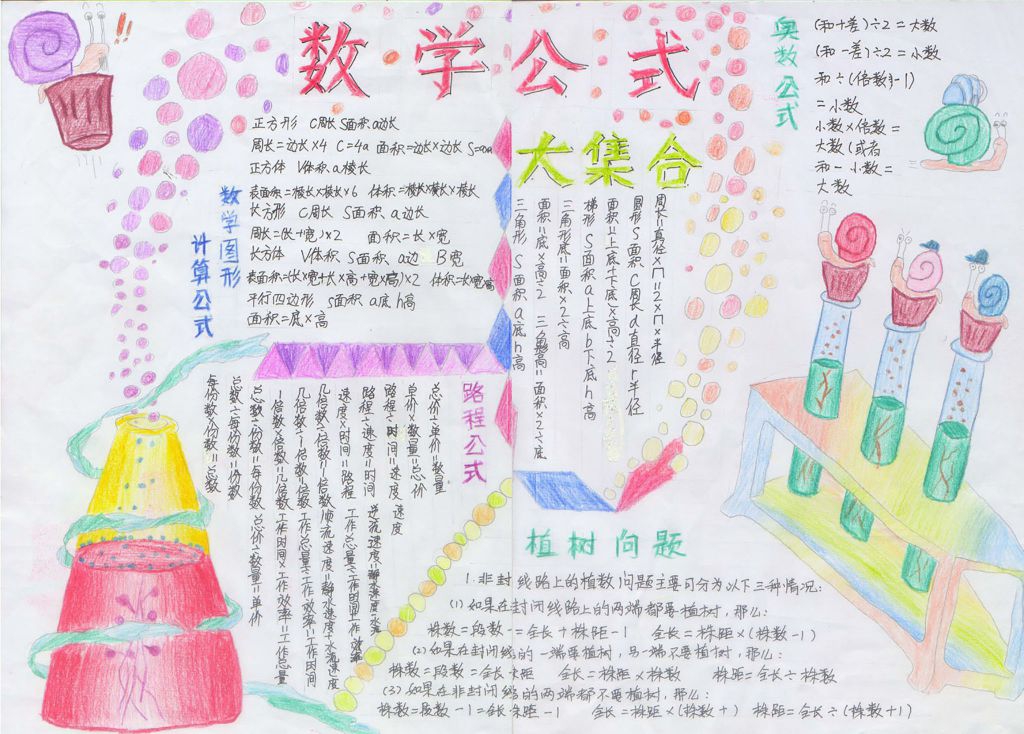 数学公式
大集合
数学图形
计算公式
正方形 C周长 S面积 a边长
周长=边长×4 C=4a 面积=边长×边长
正方体 V体积 a棱长
表面积=棱长×棱长×6 体积=棱长×棱长×棱长
长方形 C周长 S面积 a边长
周长=(长+宽)×2 面积=长×宽
长方体 V体积 S面积 a边 B宽
表面积=(长×宽+长×高+宽×高)×2 体积=长宽高
平行四边形 S面积 a底 h高
面积=底×高
周长=直径×π=2×π×半径
圆形 S面积 C周长 d直径 r半径
面积=(上底+下底)×高÷2
梯形 S面积 a上底 b下底 h高
三角形底=面积×2÷高
面积=底×高÷2 三角形高=面积×2÷底
三角形 S面积 a底 h高
奥数公式
(和+差)÷2=大数
(和-差)÷2=小数
和÷(倍数-1)
=小数
小数×倍数=
大数(或者
和-小数=
大数
路程公式
总价÷单价=数量
单价×数量=总价
路程÷时间=速度
路程÷速度=时间
速度×时间=路程
每份数×份数=总数
总数÷每份数=份数
总数÷份数=每份数 总价÷数量=单价
植树问题
1.非封线路上的植数问题主要可分为以下三种情况:
(1)如果在封闭线路上的两端都要植树,那么:
株数=段数-=全长+株距-1 全长=株距×(株数-1)
(2)如果在封闭线的一端要植树,另一端不要植树,那么:
株数=段数=全长 全长=株距×株数 株距=全长÷株数
(3)如果在非封闭线的两端都不要植树,那么:
株数=段数-1=全长 株距-1 全长=株距×(株数+) 株距=全长÷(株数+1)